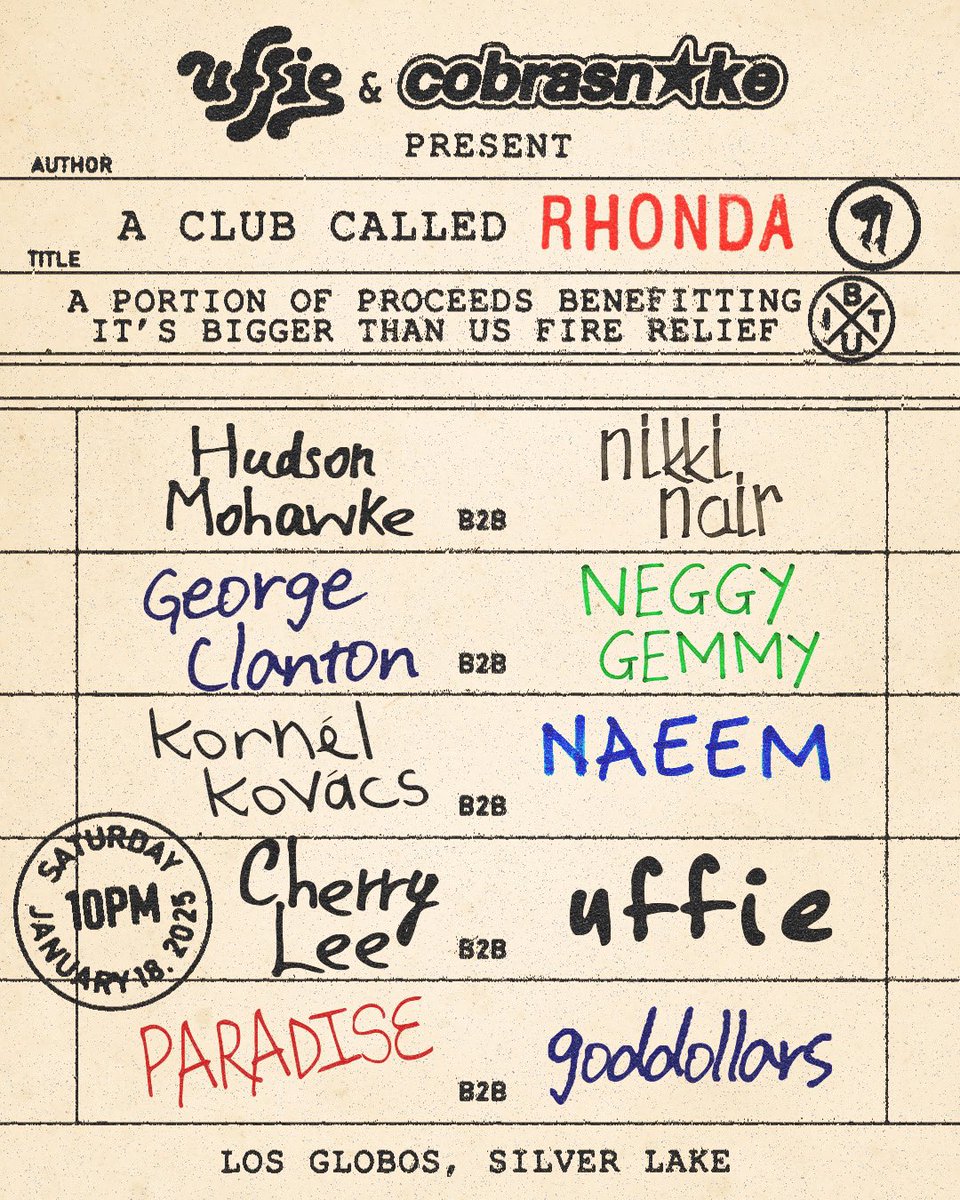 uffie & cobrasn★ke
PRESENT
AUTHOR
A CLUB CALLED RHONDA
TITLE
A PORTION OF PROCEEDS BENEFITTING
IT'S BIGGER THAN US FIRE RELIEF
B
I T
U
Hudson
Mohawke
B2B
nikki
nair
George
Clanton
B2B
NEGGY
GEMMY
Kornél
Kovács
B2B
NAEEM
SATURDAY
10PM
JANUARY 18. 2025
Cherry
Lee
B2B
uffie
PARADISE
B2B
goddollars
LOS GLOBOS, SILVER LAKE